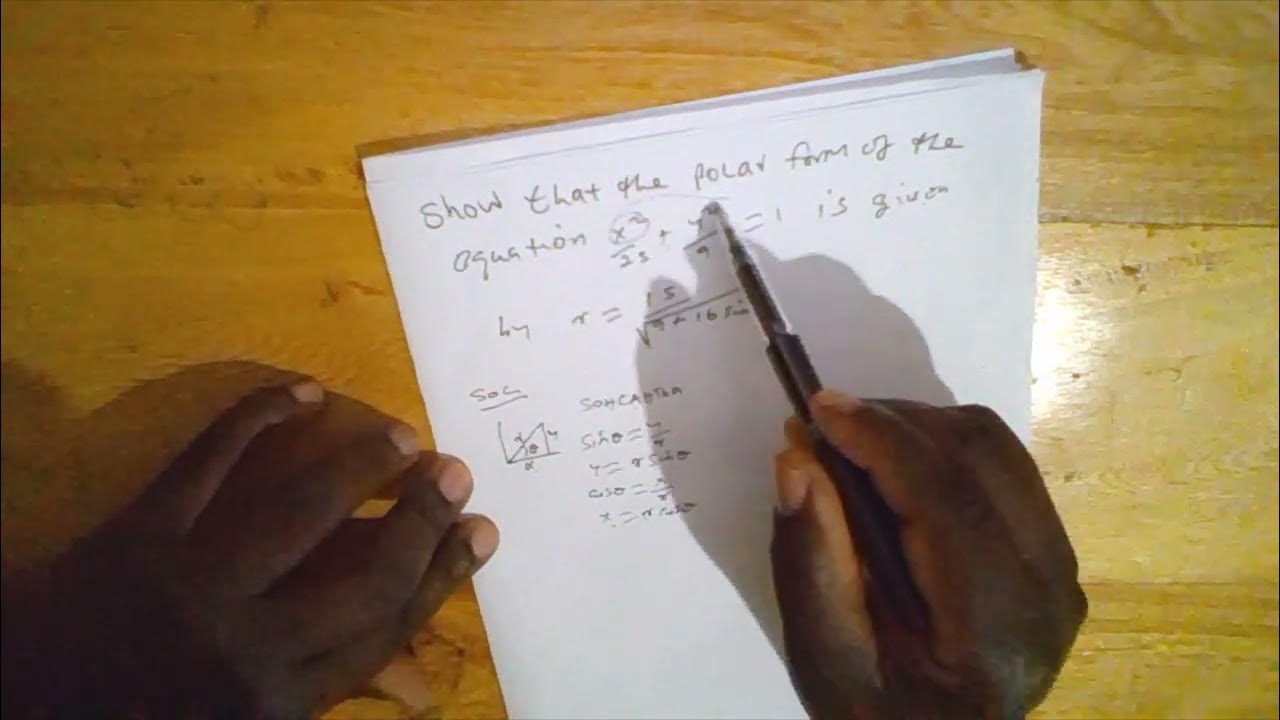 Show that the polar form of the
equation x²/25 + y²/9 = 1 is given
by r = 15/√(9 + 16 sin
SOL
SOHCAHTOA
r y θ x
sinθ = y/r
y = r sinθ
cosθ = x/r
x = r cosθ